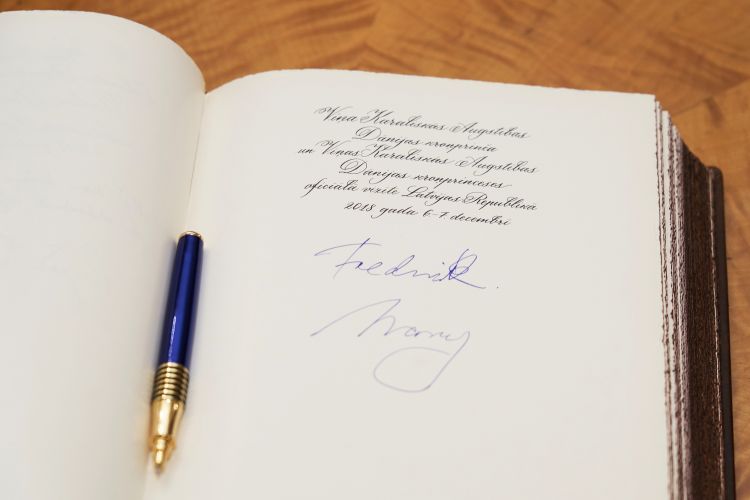 Viņa Karaliskās Augstības
Dānijas kroņprinča
un Viņas Karaliskās Augstības
Dānijas kroņprinceses
oficiālā vizīte Latvijas Republikā
2018. gada 6.-7. decembrī
Frederik
Mary